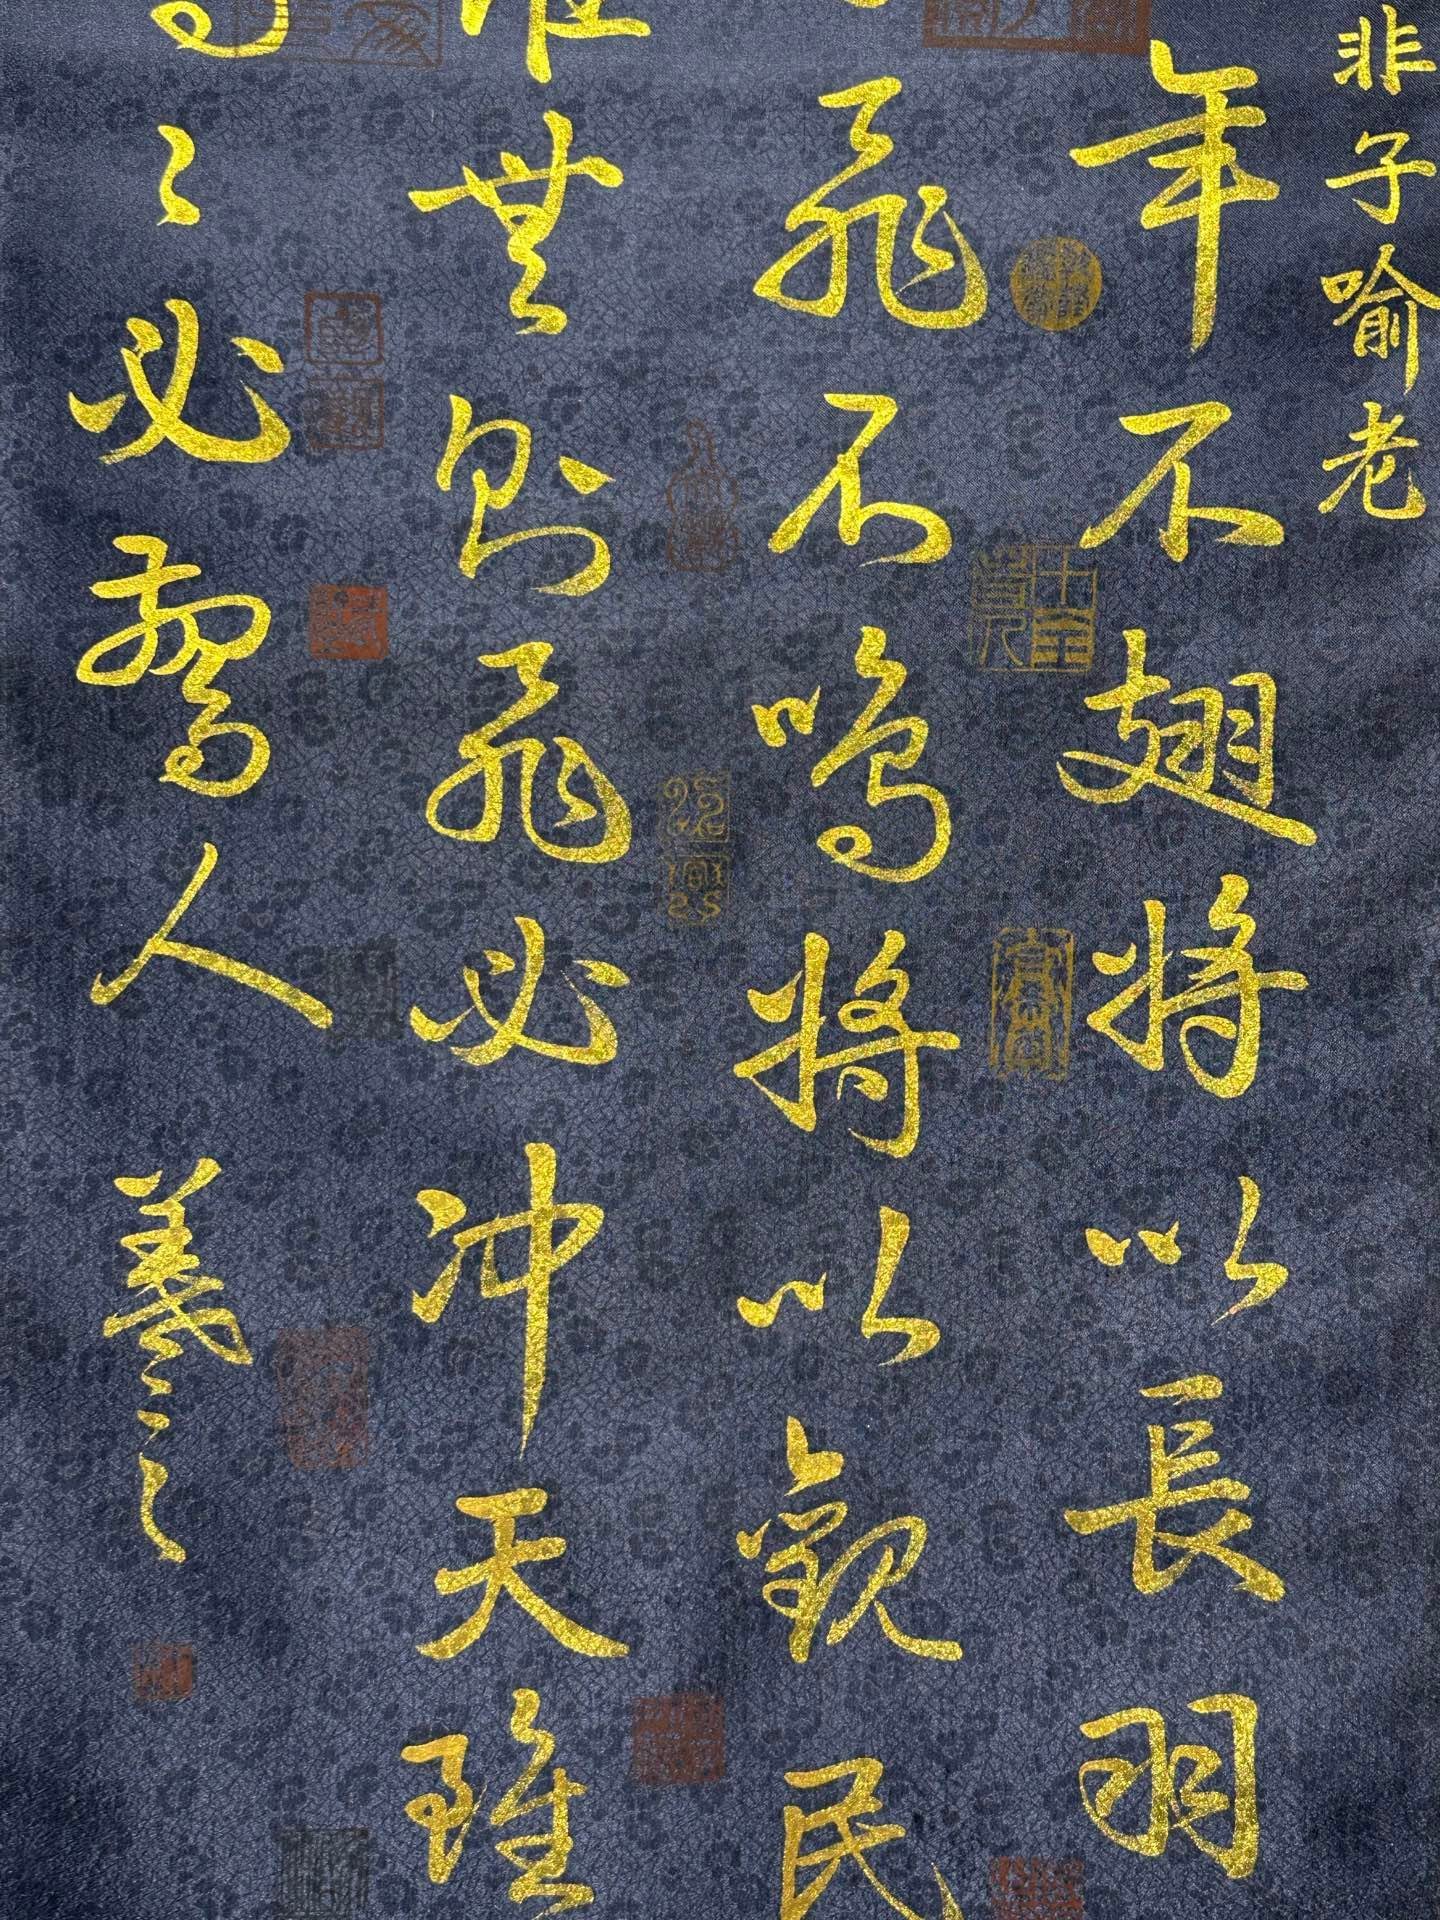 非子喻老
年不翅将以長羽
飛不鳴将以觀民
無則飛必冲天雖
〻必驚人 羲之